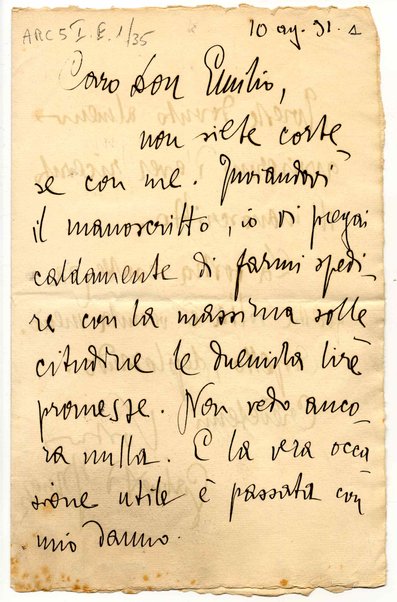 ARC 5 I. E. 1/35
10 ag. 91.
Caro Don Emilio,
non siete corte-
se con me. Inviandovi
il manoscritto, io vi pregai
caldamente di farmi spedi-
re con la massima solle
citudine le duemila lire
promesse. Non vedo anco-
ra nulla. E la vera occa
sione utile è passata con
mio danno.